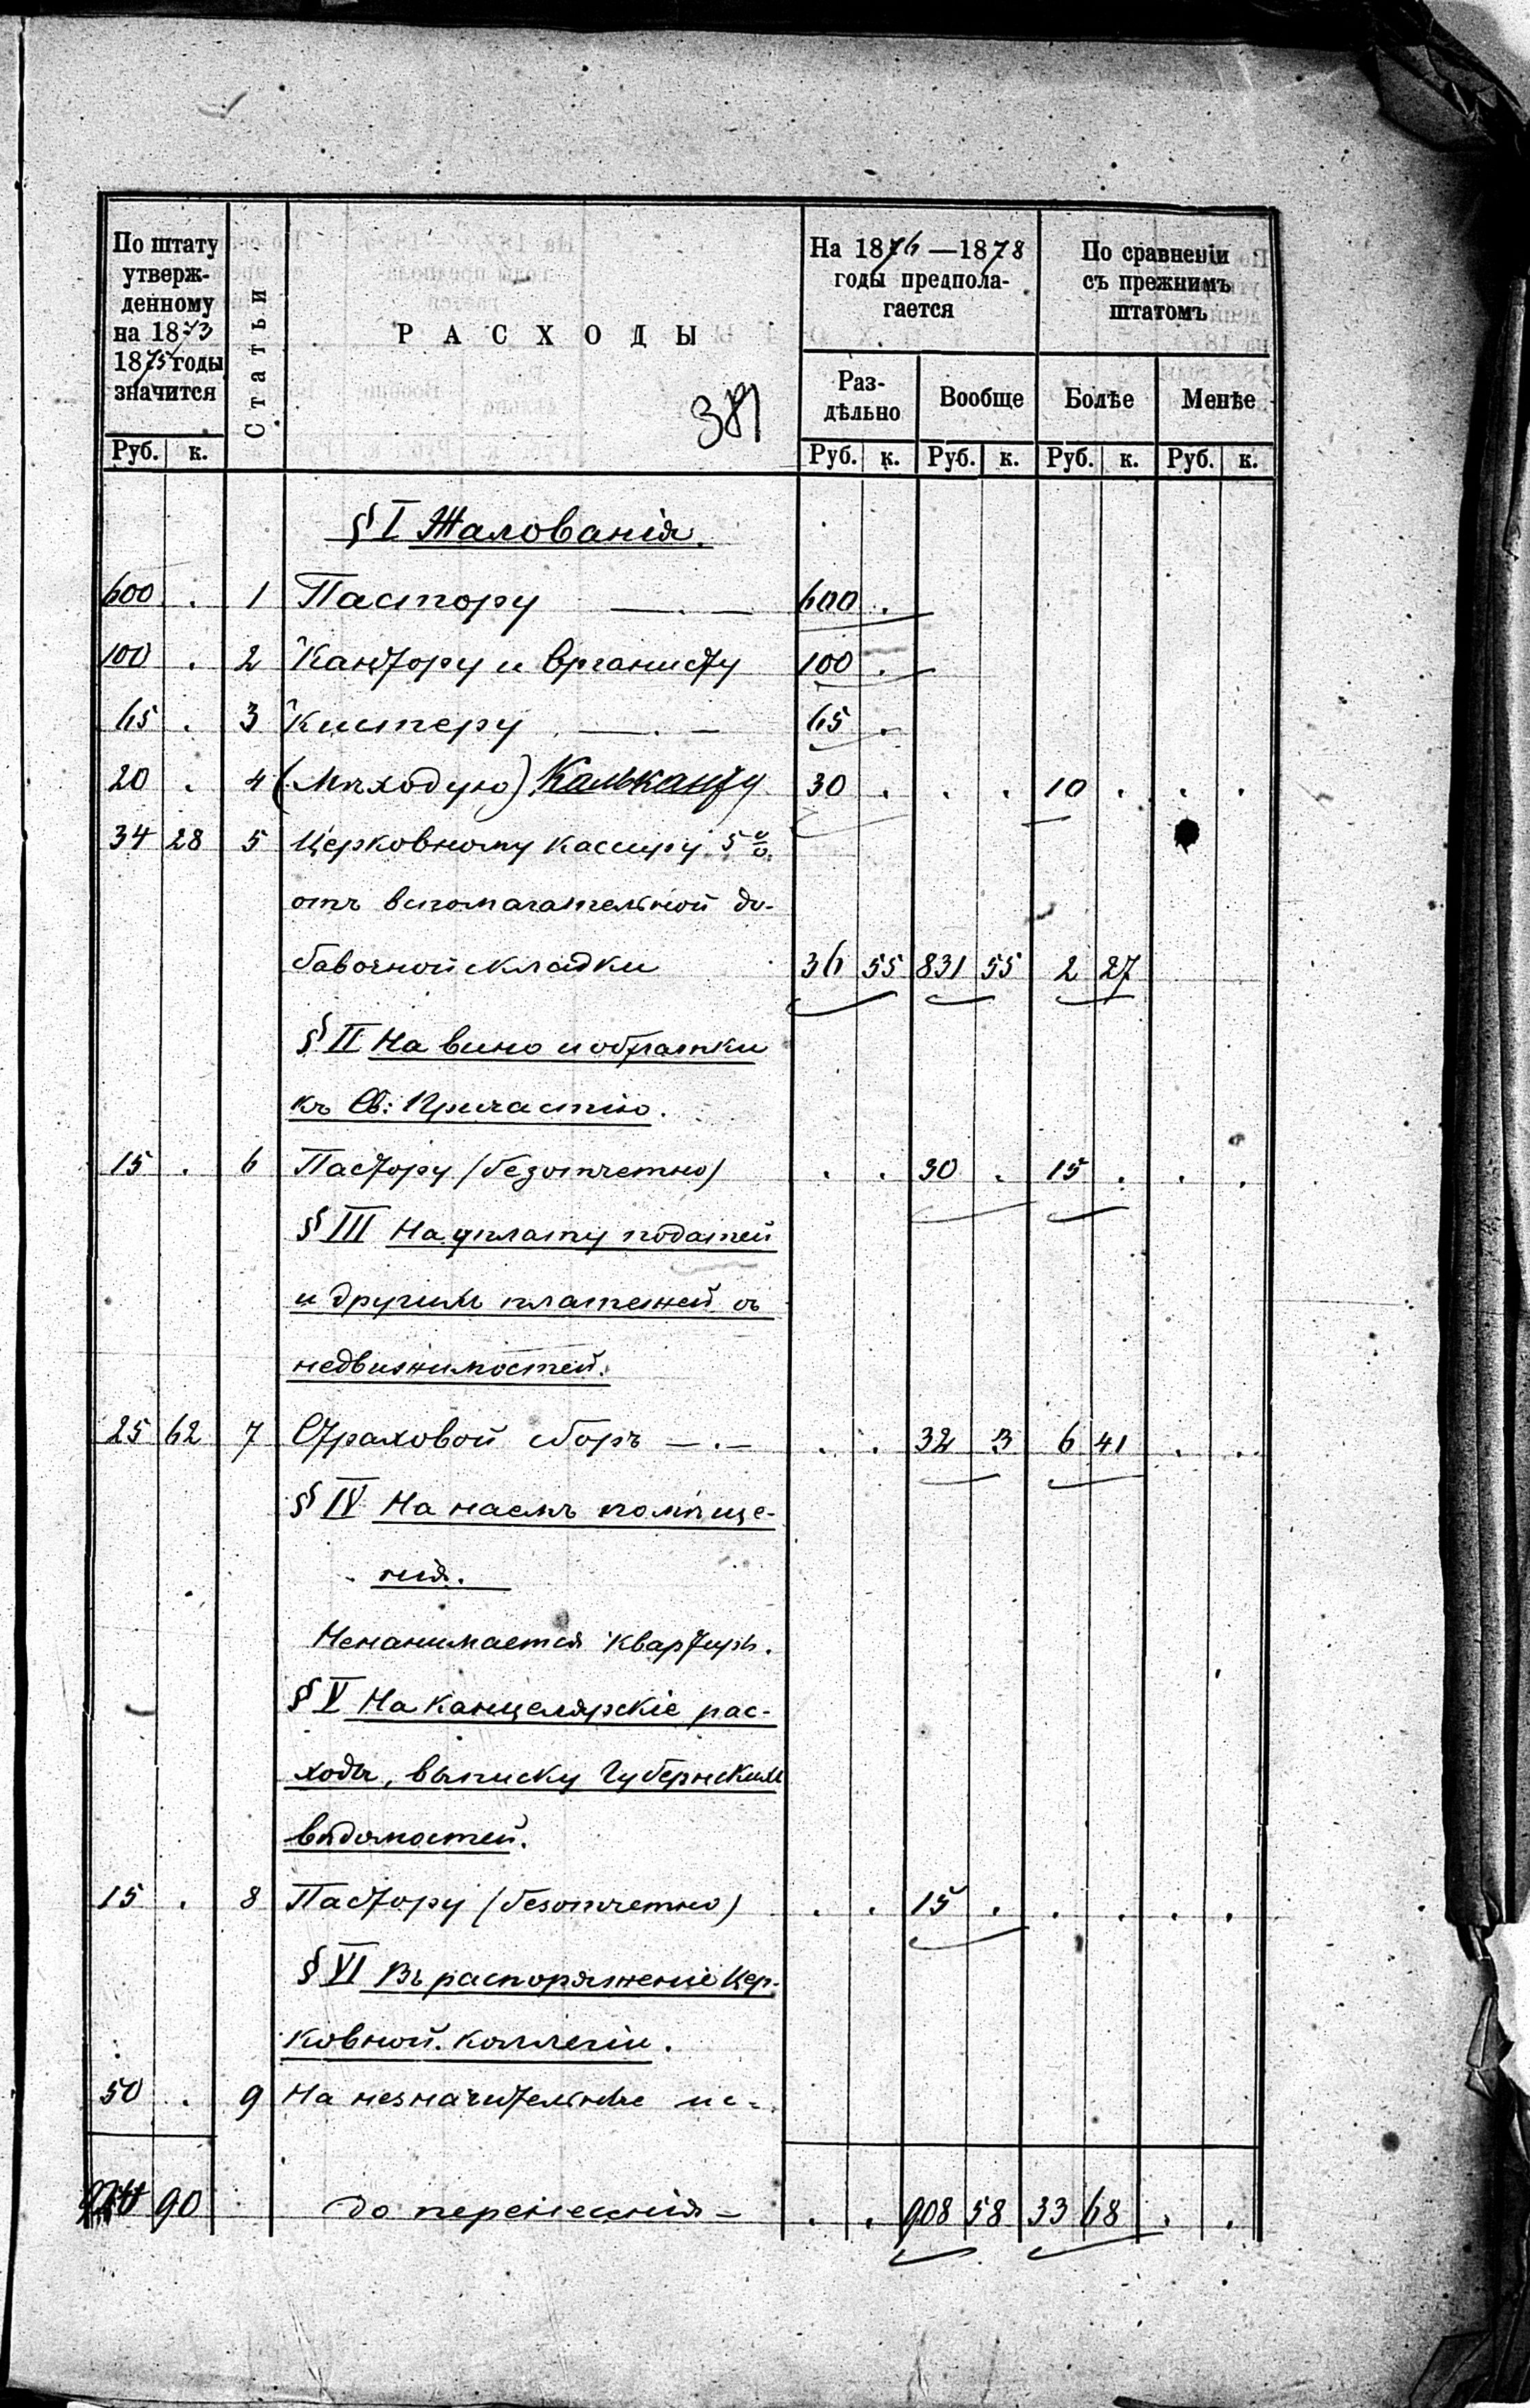 По штату
утверж-
денному
на 1873
1875 годы
значится
Руб. к.
Статьи
РАСХОДЫ
381
На 1876 —1878
годы предпола-
гается
Раз-
дѣльно
Вообще
По сравненіи
съ прежнимъ
штатомъ
Болѣе
Менѣе
Руб. к. Руб. к. Руб. к. Руб. к.
§ I Жалованія.
600 . 1 Пастору —.— 600 .
100 . 2 Кантору и Органисту 100 .
65 . 3 Кистеру —.— 65 .
20 . 4 (Мѣходую) Кальканту 30 . . . 10 . . .
34 28 5 Церковному кассиру 5%
отъ вспомагательной до-
бавочной складки 36 55 831 55 2 27
§ II На вино и облатки
къ Св: Причастію.
15 . 6 Пастору (безотчетно) . . 30 . 15 . . .
§ III На уплату податей
и другихъ платежей съ
недвижимостей.
25 62 7 Страховой сборъ —.— . . 32 3 6 41 . .
§ IV На наемъ помѣще-
нія.
Ненанимается квартиръ.
§ V На канцелярскіе рас-
ходы, выписку Губернскихъ
вѣдомостей.
15 . 8 Пастору (безотчетно) . . 15 . . . . .
§ VI Въ распоряженіе Цер-
ковной коллегіи.
50 . 9 На незначительные ис-
90 до перенесенія — . . 908 58 33 68 . .